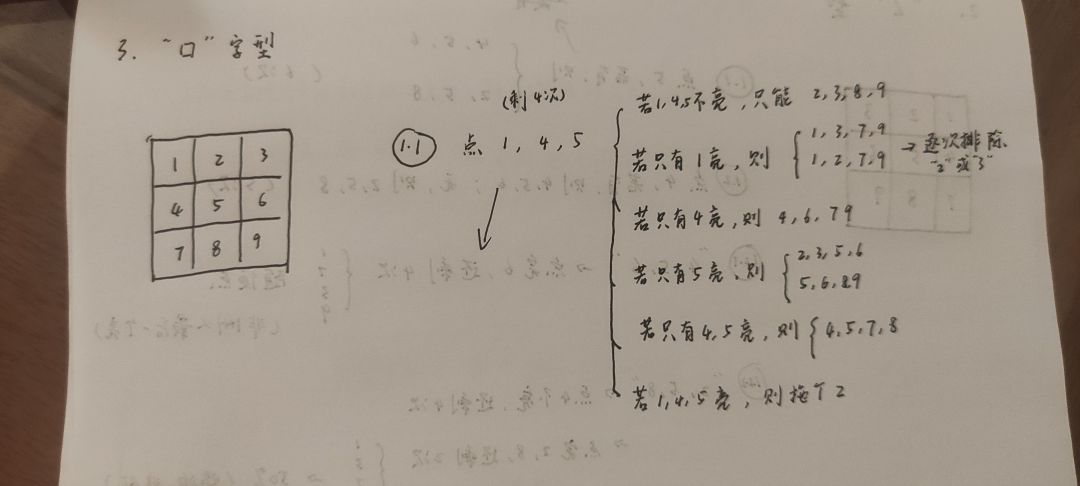 3. “口”字型
(剩4次)
1.1 点 1, 4, 5
1 2 3
4 5 6
7 8 9
若1,4,5不亮,只能 2,3,8,9
若只有1亮,则 { 1,3,7,9
1,2,7,9
→ 逐次排除
“2”或“3”
若只有4亮,则 4,6,79
若只有5亮,则 { 2,3,5,6
5,6,89
若只有4,5亮,则 { 4,5,7,8
若1,4,5亮,则 2